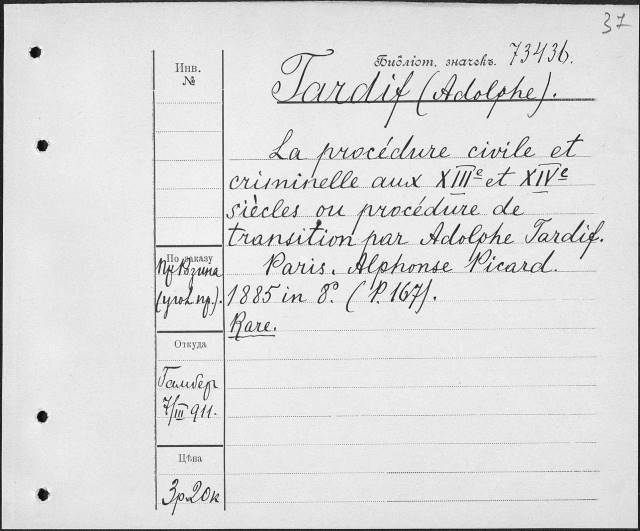 37
Библіот. значекъ. 73436.
Инв.
№
Tardif (Adolphe).
La procédure civile et
criminelle aux XIIIe et XIVe
siècles ou procédure de
transition par Adolphe Tardif.
Paris. Alphonse Picard.
1885 in 8º. (P. 167).
Rare.
По заказу
(угол. пр.).
Откуда
7/III 911.
Цѣна
3р 20к